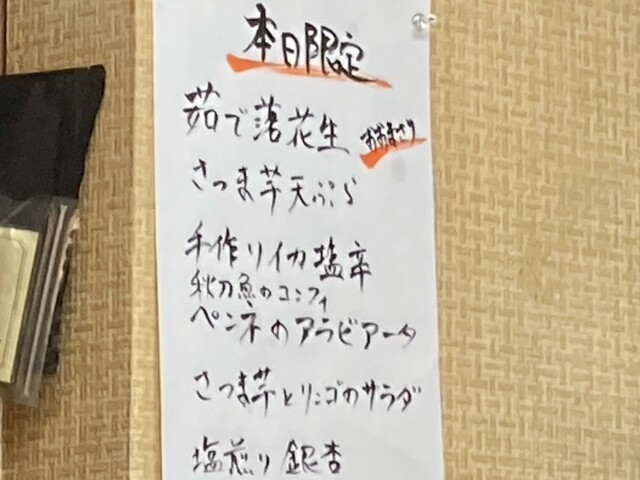 本日限定
茹で落花生 おおまさり
さつま芋天ぷら
手作りイカ塩辛
秋刀魚のコンフィ
ペンネのアラビアータ
さつま芋とリンゴのサラダ
塩煎り銀杏